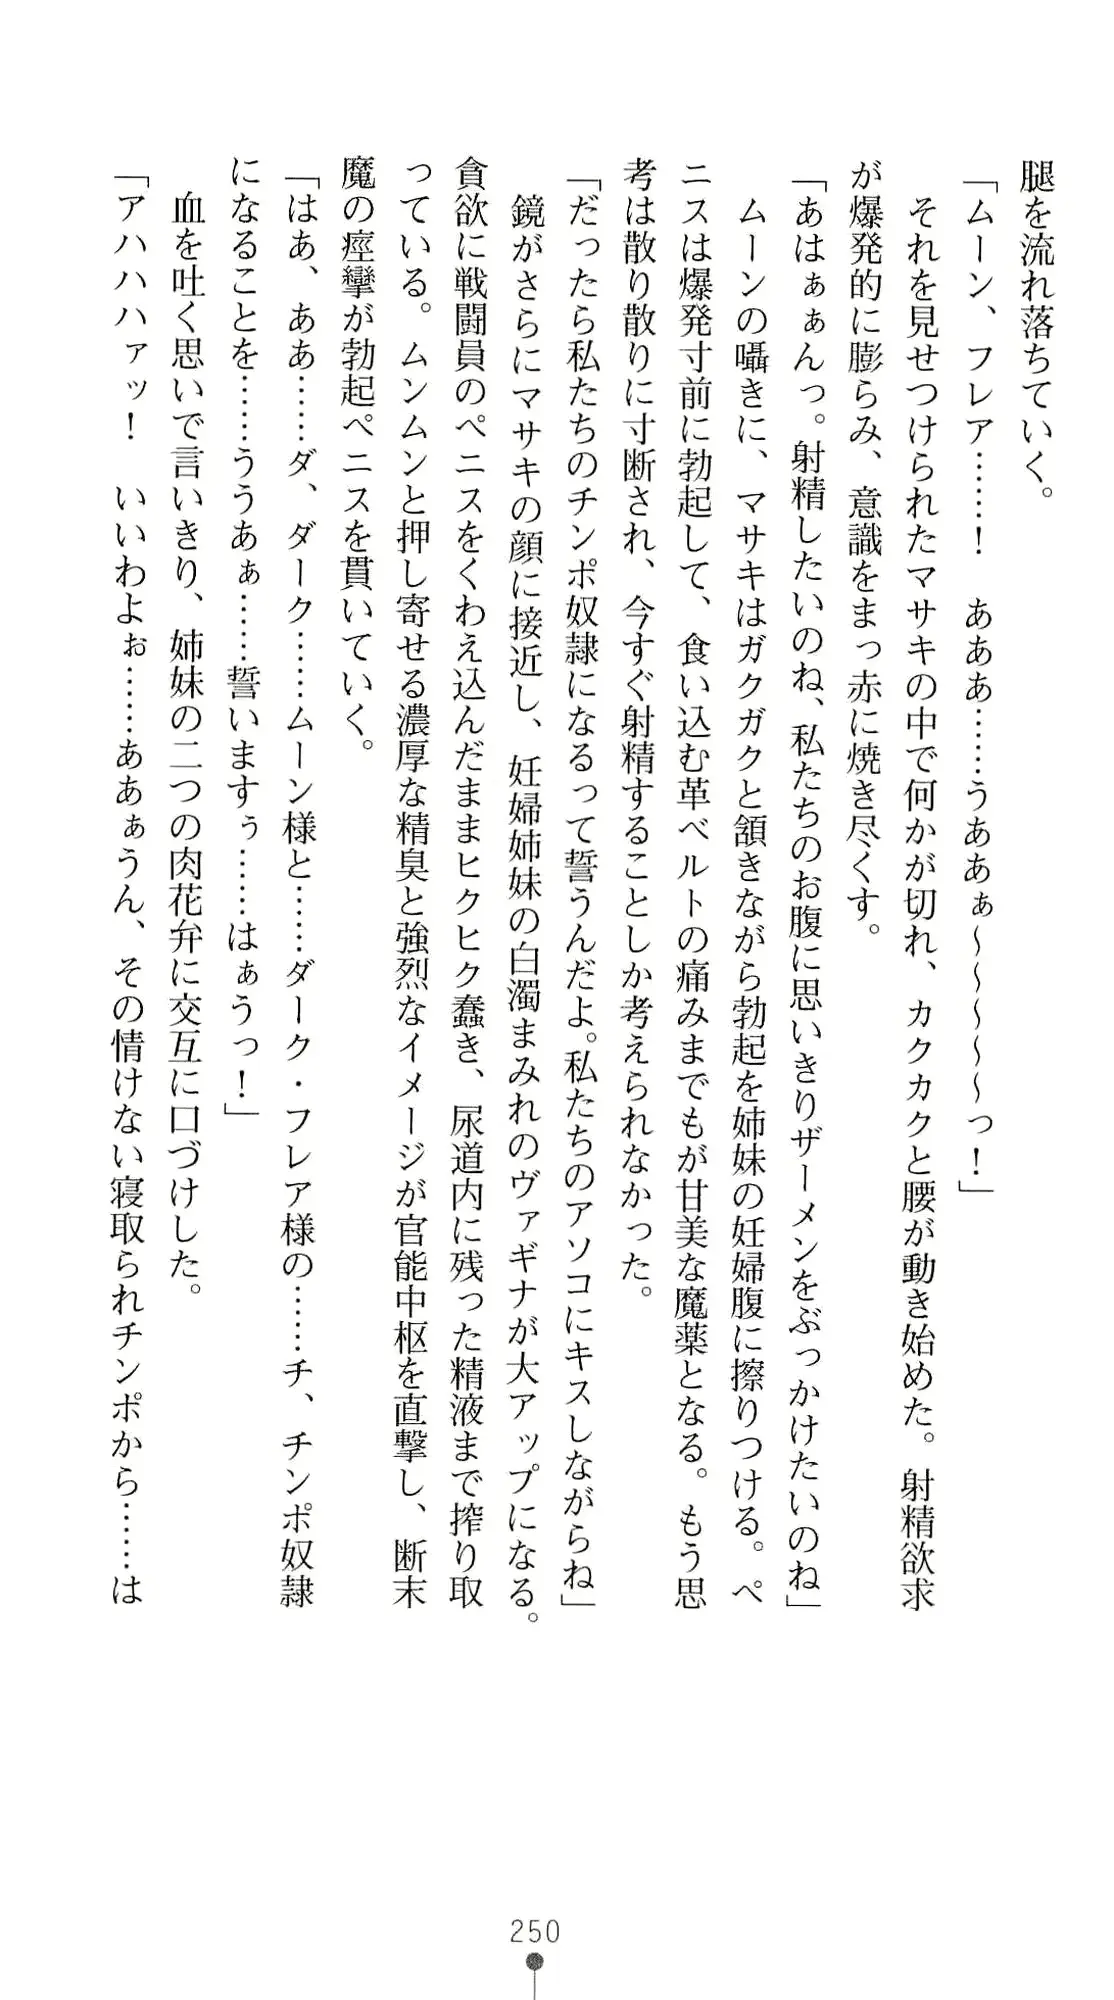 腿を流れ落ちていく。
「ムーン、フレア……！　あああ……うああぁ～～～～～っ！」
それを見せつけられたマサキの中で何かが切れ、カクカクと腰が動き始めた。射精欲求
が爆発的に膨らみ、意識をまっ赤に焼き尽くす。
「あはぁぁんっ。射精したいのね、私たちのお腹に思いきりザーメンをぶっかけたいのね」
ムーンの囁きに、マサキはガクガクと頷きながら勃起を姉妹の妊婦腹に擦りつける。ペ
ニスは爆発寸前に勃起して、食い込む革ベルトの痛みまでもが甘美な魔薬となる。もう思
考は散り散りに寸断され、今すぐ射精することしか考えられなかった。
「だったら私たちのチンポ奴隷になるって誓うんだよ。私たちのアソコにキスしながらね」
鏡がさらにマサキの顔に接近し、妊婦姉妹の白濁まみれのヴァギナが大アップになる。
貪欲に戦闘員のペニスをくわえ込んだままヒクヒク蠢き、尿道内に残った精液まで搾り取
っている。ムンムンと押し寄せる濃厚な精臭と強烈なイメージが官能中枢を直撃し、断末
魔の痙攣が勃起ペニスを貫いていく。
「はあ、ああ……ダ、ダーク……ムーン様と……ダーク・フレア様の……チ、チンポ奴隷
になることを……ううあぁ……誓いますぅ……はぁうっ！」
血を吐く思いで言いきり、姉妹の二つの肉花弁に交互に口づけした。
「アハハハァッ！　いいわよぉ……ああぁうん、その情けない寝取られチンポから……は
250